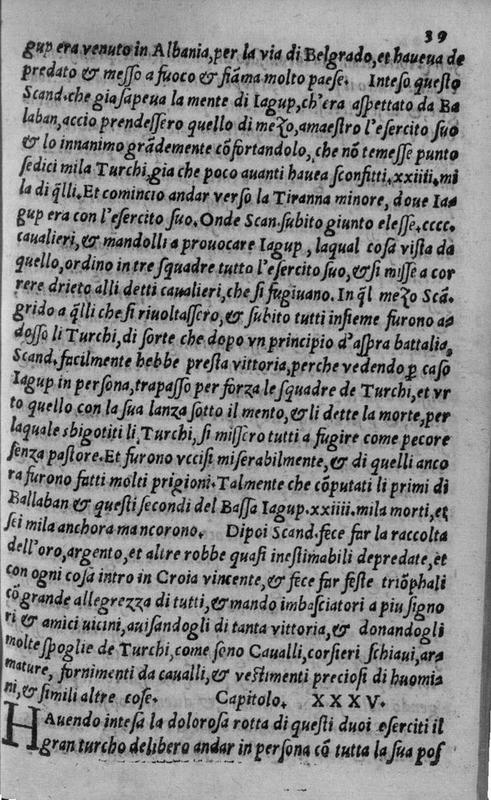 39
gup era venuto in Albania, per la via di Belgrado, et haueua de
predato & messo a fuoco & fiãma molto paese. Inteso questo
Scand. che gia sapeua la mente di Iagup, ch'era aspettato da Ba
laban, accio prendessero quello di mezo, amaestro l'esercito suo
& lo innanimo grãdemente cõfortandolo, che nõ temesse punto
sedici mila Turchi, gia che poco auanti hauea sconfitti. xxiiii. mi
la di q̃lli. Et comincio andar verso la Tiranna minore, doue Ia-
gup era con l'esercito suo. Onde Scan. subito giunto elesse. cccc.
caualieri, & mandolli a prouocare Iagup, laqual cosa vista da
quello, ordino in tre squadre tutto l'esercito suo, & si misse a cor
rere drieto alli detti caualieri, che si fugiuano. In q̃l mezo Scã.
grido a q̃lli che si riuoltassero, & subito tutti insieme furono a-
dosso li Turchi, di sorte che dopo vn principio d'aspra battalia,
Scand. facilmente hebbe presta vittoria, perche vedendo ꝑ caso
Iagup in persona, trapasso per forza le squadre de Turchi, et vr
to quello con la sua lanza sotto il mento, & li dette la morte, per
laquale sbigotiti li Turchi, si missero tutti a fugire come pecore
senza pastore. Et furono vccisi miserabilmente, & di quelli anco
ra furono fatti molti prigioni. Talmente che cõputati li primi di
Ballaban & questi secondi del Bassa Iagup. xxiiii. mila morti, et
sei mila anchora mancorono. Dipoi Scand. fece far la raccolta
dell'oro, argento, et altre robbe quasi inestimabili depredate, et
con ogni cosa intro in Croia vincente, & fece far feste triõphali
cõ grande allegrezza di tutti, & mando imbasciatori a piu signo
ri & amici uicini, auisandogli di tanta vittoria, & donandogli
molte spoglie de Turchi, come seno Caualli, corsieri schiaui, ar-
mature, fornimenti da caualli, & vestimenti preciosi di huomi-
ni, & simili altre cose. Capitolo. XXXV.
HAuendo intesa la dolorosa rotta di questi duoi eserciti il
gran turcho delibero andar in persona cõ tutta la sua pos